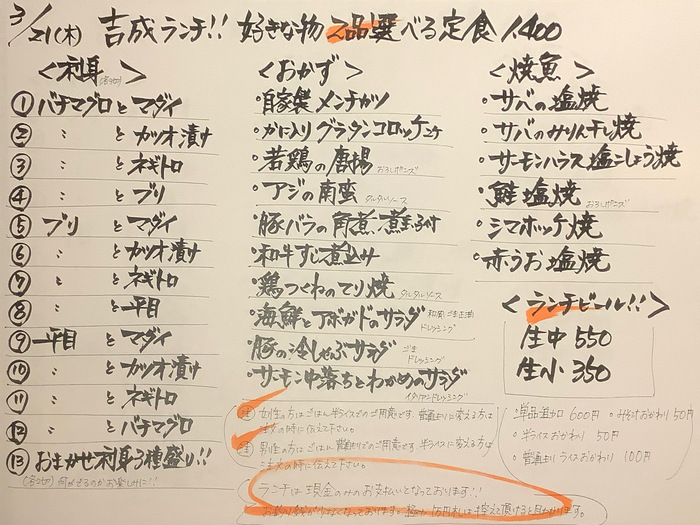 3/21(木) 吉成ランチ!! 好きな物 2品選べる定食 1,400
<刺身>
① バチマグロ と マダイ
② 〃 と カツオ漬け
③ 〃 と ネギトロ
④ 〃 と ブリ
⑤ ブリ と マダイ
⑥ 〃 と カツオ漬け
⑦ 〃 と ネギトロ
⑧ 〃 と 平目
⑨ 平目 と マダイ
⑩ 〃 と カツオ漬け
⑪ 〃 と ネギトロ
⑫ 〃 と バチマグロ
⑬ おまかせ刺身3種盛り!!
何がでるのかお楽しみに!!
<おかず>
・自家製 メンチカツ
・かに入り グラタンコロッケ
・若鶏の唐揚 おろしポン酢
・アジの南蛮 タルタルソース
・豚バラの角煮、煮玉子付
・和牛すじ煮込み
・鶏つくねのてり焼 タルタルソース
・海鮮とアボガドのサラダ 和風ごま正油ドレッシング
・豚の冷しゃぶサラダ ごまドレッシング
・サーモン中落ちとわかめのサラダ
イタリアンドレッシング
<焼魚>
・サバの塩焼
・サバのみりん干し焼
・サーモンハラス塩こしょう焼
・鮭塩焼 おろしポン酢
・シマホッケ焼
・赤うお塩焼
<ランチビール!!>
生中 550
生小 350
・単品追加 600円 ・みそ汁おかわり 50円
・半ライスおかわり 50円
・普通盛りライスおかわり 100円
注 女性の方はごはん半ライスでのご用意です。普通盛りに変える方は
注文の時に伝えて下さい。
注 男性の方はごはん普通盛りでのご用意です。半ライスに変える方は
ご注文の時に伝えて下さい。
ランチは現金のみのお支払いとなっております!!